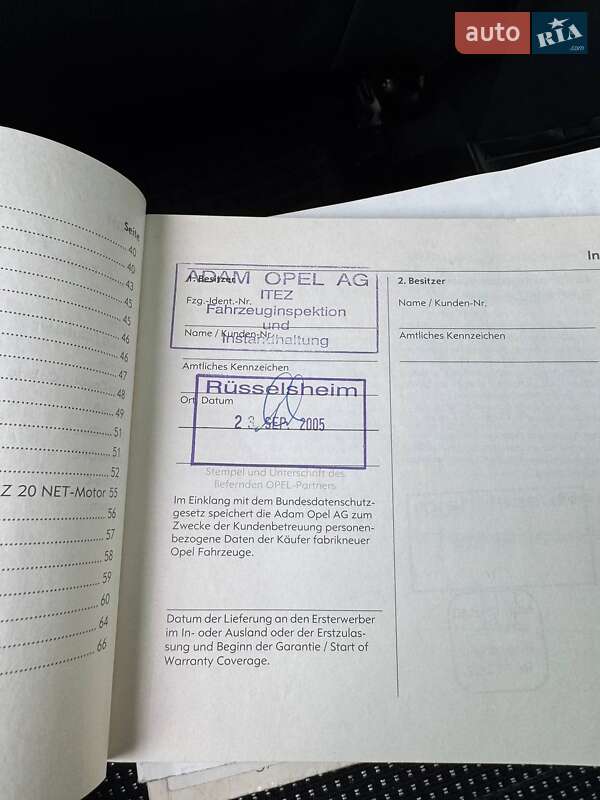 auto RIA .com
Seite
40
40
43
45
45
46
46
47
48
49
51
51
52
Z 20 NET-Motor 55
56
57
58
59
60
64
66
In
1. Besitzer
ADAM OPEL AG
ITEZ
Fzg.-Ident.-Nr.
Fahrzeuginspektion
und
Name / Kunden-Nr.
Instandhaltung
Amtliches Kennzeichen
Rüsselsheim
Ort, Datum
23. SEP. 2005
Stempel und Unterschrift des
liefernden OPEL-Partners
Im Einklang mit dem Bundesdatenschutz-
gesetz speichert die Adam Opel AG zum
Zwecke der Kundenbetreuung personen-
bezogene Daten der Käufer fabrikneuer
Opel Fahrzeuge.
Datum der Lieferung an den Ersterwerber
im In- oder Ausland oder der Erstzulas-
sung und Beginn der Garantie / Start of
Warranty Coverage.
2. Besitzer
Name / Kunden-Nr.
Amtliches Kennzeichen